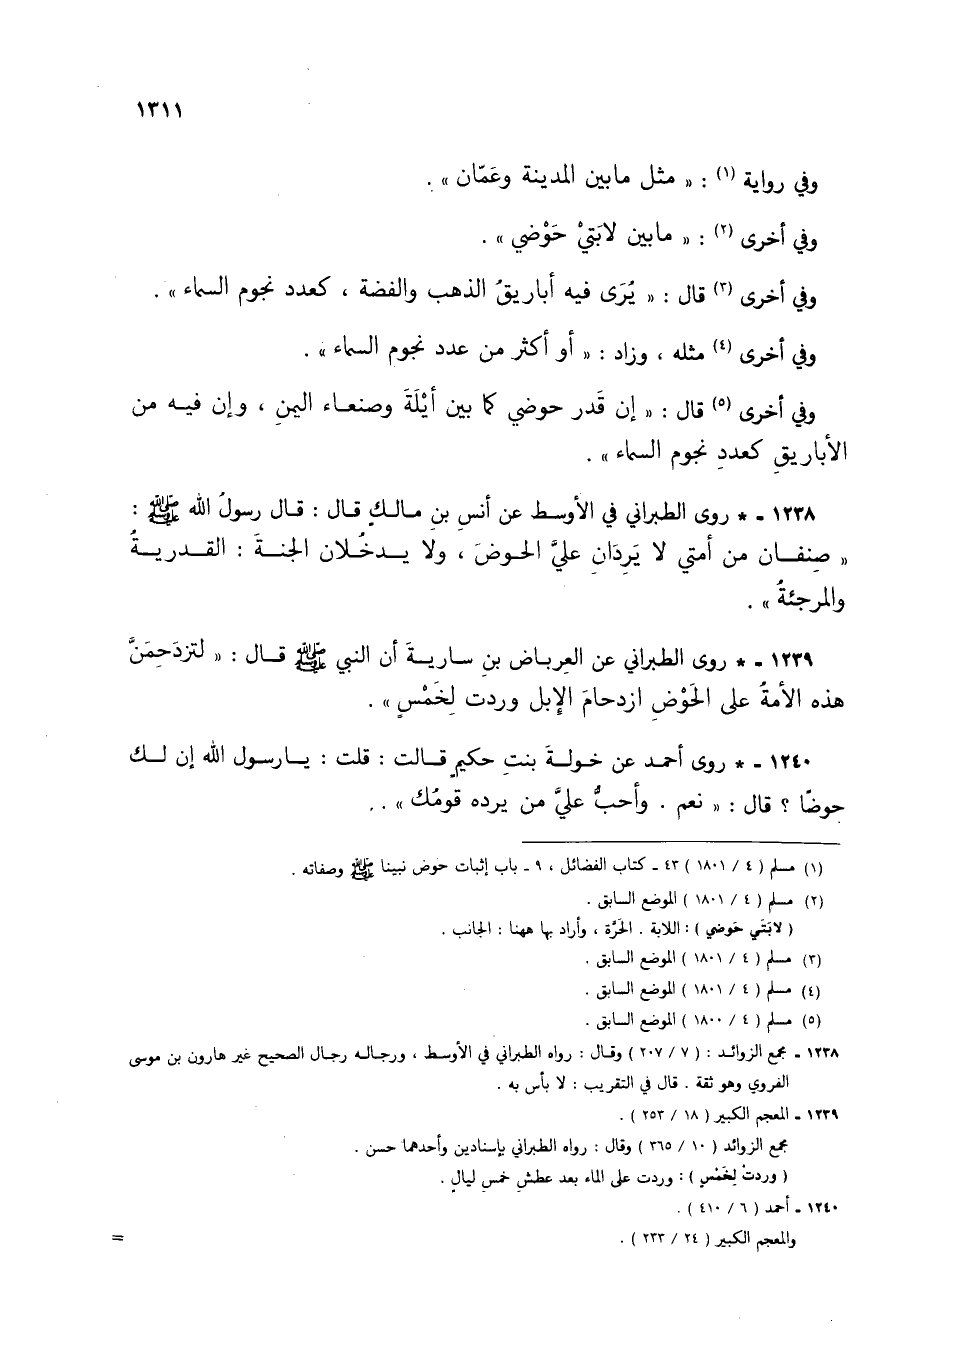 ١٣١١
وفي رواية (١) : « مثل مابين المدينة وعَمّان » .
وفي أخرى (٢) : « مابين لابَتيْ حَوْضي » .
وفي أخرى (٣) قال : « يُرَى فيه أباريقُ الذهب والفضة ، كعدد نجوم السماء » .
وفي أخرى (٤) مثله ، وزاد : « أو أكثر من عدد نجوم السماء » .
وفي أخرى (٥) قال : « إن قَدر حوضي كما بين أَيْلَةَ وصنعاء اليمنِ ، وإن فيه من
الأباريقِ كعددِ نجوم السماء » .
١٢٣٨ - * روى الطبراني في الأوسط عن أنسِ بنِ مالكٍ قال : قال رسولُ الله ﷺ :
« صِنفان من أمتي لا يَرِدَانِ عليَّ الحوضَ ، ولا يدخُلان الجنةَ : القدريةُ
والمرجئةُ » .
١٢٣٩ - * روى الطبراني عن العرباض بنِ ساريةَ أن النبي ﷺ قال : « لتزدَحِمَنَّ
هذه الأمةُ على الحَوْضِ ازدحامَ الإبل وردت لِخَمْسٍ » .
١٢٤٠ - * روى أحمد عن خولةَ بنتِ حكيمٍ قالت : قلت : يارسول الله إن لك
حوضًا ؟ قال : « نعم . وأحبُّ عليَّ من يرده قومُك » . .
(١) مسلم ( ٤ / ١٨٠١ ) ٤٣ - كتاب الفضائل ، ٩ - باب إثبات حوض نبينا ﷺ وصفاته .
(٢) مسلم ( ٤ / ١٨٠١ ) الموضع السابق .
( لابَتَي حَوضي ) : اللابة . الحَرَّة ، وأراد بها ههنا : الجانب .
(٣) مسلم ( ٤ / ١٨٠١ ) الموضع السابق .
(٤) مسلم ( ٤ / ١٨٠١ ) الموضع السابق .
(٥) مسلم ( ٤ / ١٨٠٠ ) الموضع السابق .
١٢٣٨ - مجمع الزوائد : ( ٧ / ٢٠٧ ) وقال : رواه الطبراني في الأوسط ، ورجاله رجال الصحيح غير هارون بن موسى
الفروي وهو ثقة . قال في التقريب : لا بأس به .
١٢٣٩ - المعجم الكبير ( ١٨ / ٢٥٣ ) .
مجمع الزوائد ( ١٠ / ٣٦٥ ) وقال : رواه الطبراني بإسنادين وأحدهما حسن .
( وردتْ لِخَمْسٍ ) : وردت على الماء بعد عطشِ خمسِ ليالٍ .
١٢٤٠ - أحمد ( ٦ / ٤١٠ ) .
والمعجم الكبير ( ٢٤ / ٢٣٣ ) .
=